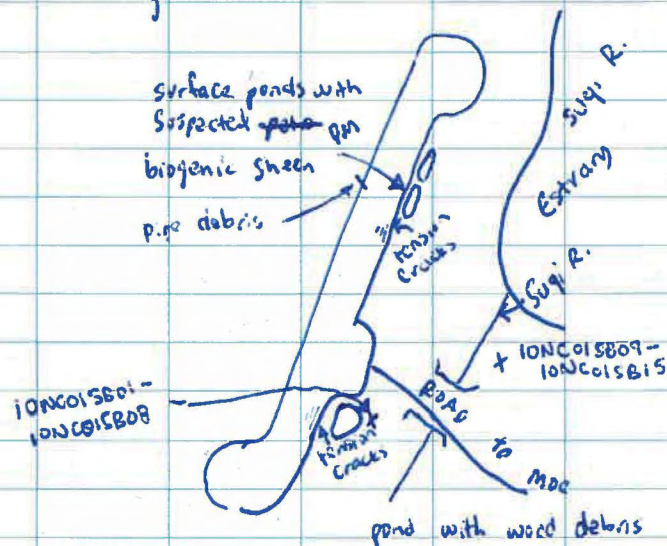 surface ponds with
suspected pm
biogenic sheen
pipe debris
tension
cracks
Suqi R.
Estuary
Suqi R.
10NC01SB09-
10NC01SB15
10NC01SB01-
10NC01SB08
tension
cracks
ROAD to MOC
pond with wood debris